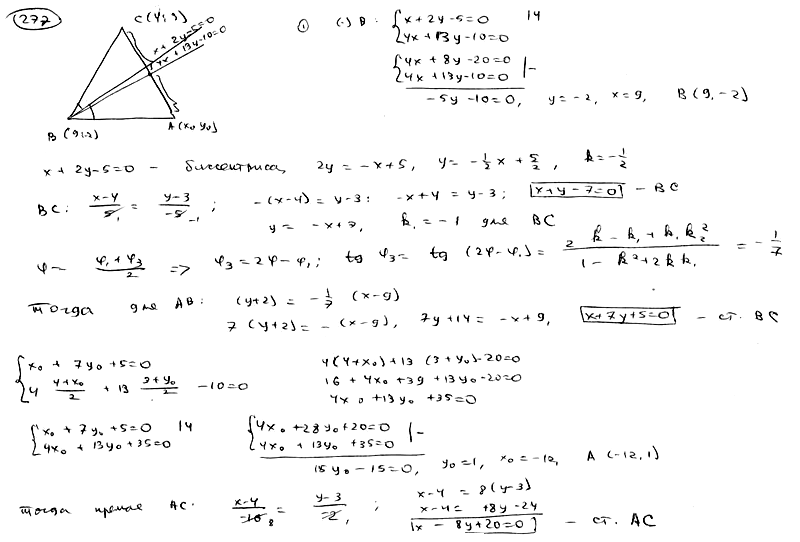 277
C (4; 3)
x + 2y - 5 = 0
4x + 13y - 10 = 0
B (9; -2)
A (x₀ y₀)
① (·) B: { x + 2y - 5 = 0 |4
4x + 13y - 10 = 0
{ 4x + 8y - 20 = 0
4x + 13y - 10 = 0 | -
-5y - 10 = 0, y = -2, x = 9, B (9, -2)
x + 2y - 5 = 0 — биссектриса, 2y = -x + 5, y = -1/2 x + 5/2, k = -1/2
BC: (x-4)/5 1 = (y-3)/-5 -1; -(x-4) = y-3: -x+4 = y-3; x+y-7=0 — BC
y = -x+7, k₁ = -1 для BC
φ — (φ₁ + φ₃)/2 => φ₃ = 2φ - φ₁; tg φ₃ = tg (2φ - φ₁) = (2k - k₁ + k₁k²)/(1 - k² + 2kk₁) = -1/7
Тогда для AB: (y+2) = -1/7 (x-9)
7 (y+2) = -(x-9), 7y+14 = -x+9, x+7y+5=0 — ст. BC
{ x₀ + 7y₀ + 5 = 0
4 (4+x₀)/2 + 13 (3+y₀)/2 - 10 = 0
4(4+x₀) + 13 (3+y₀) - 20 = 0
16 + 4x₀ + 39 + 13y₀ - 20 = 0
4x₀ + 13y₀ + 35 = 0
{ x₀ + 7y₀ + 5 = 0 |4
4x₀ + 13y₀ + 35 = 0
{ 4x₀ + 28y₀ + 20 = 0
4x₀ + 13y₀ + 35 = 0 | -
15y₀ - 15 = 0, y₀ = 1, x₀ = -12, A (-12, 1)
Тогда прямая AC: (x-4)/-16 8 = (y-3)/-2 1; x-4 = 8(y-3)
x-4 = +8y-24
x - 8y + 20 = 0 — ст. AC